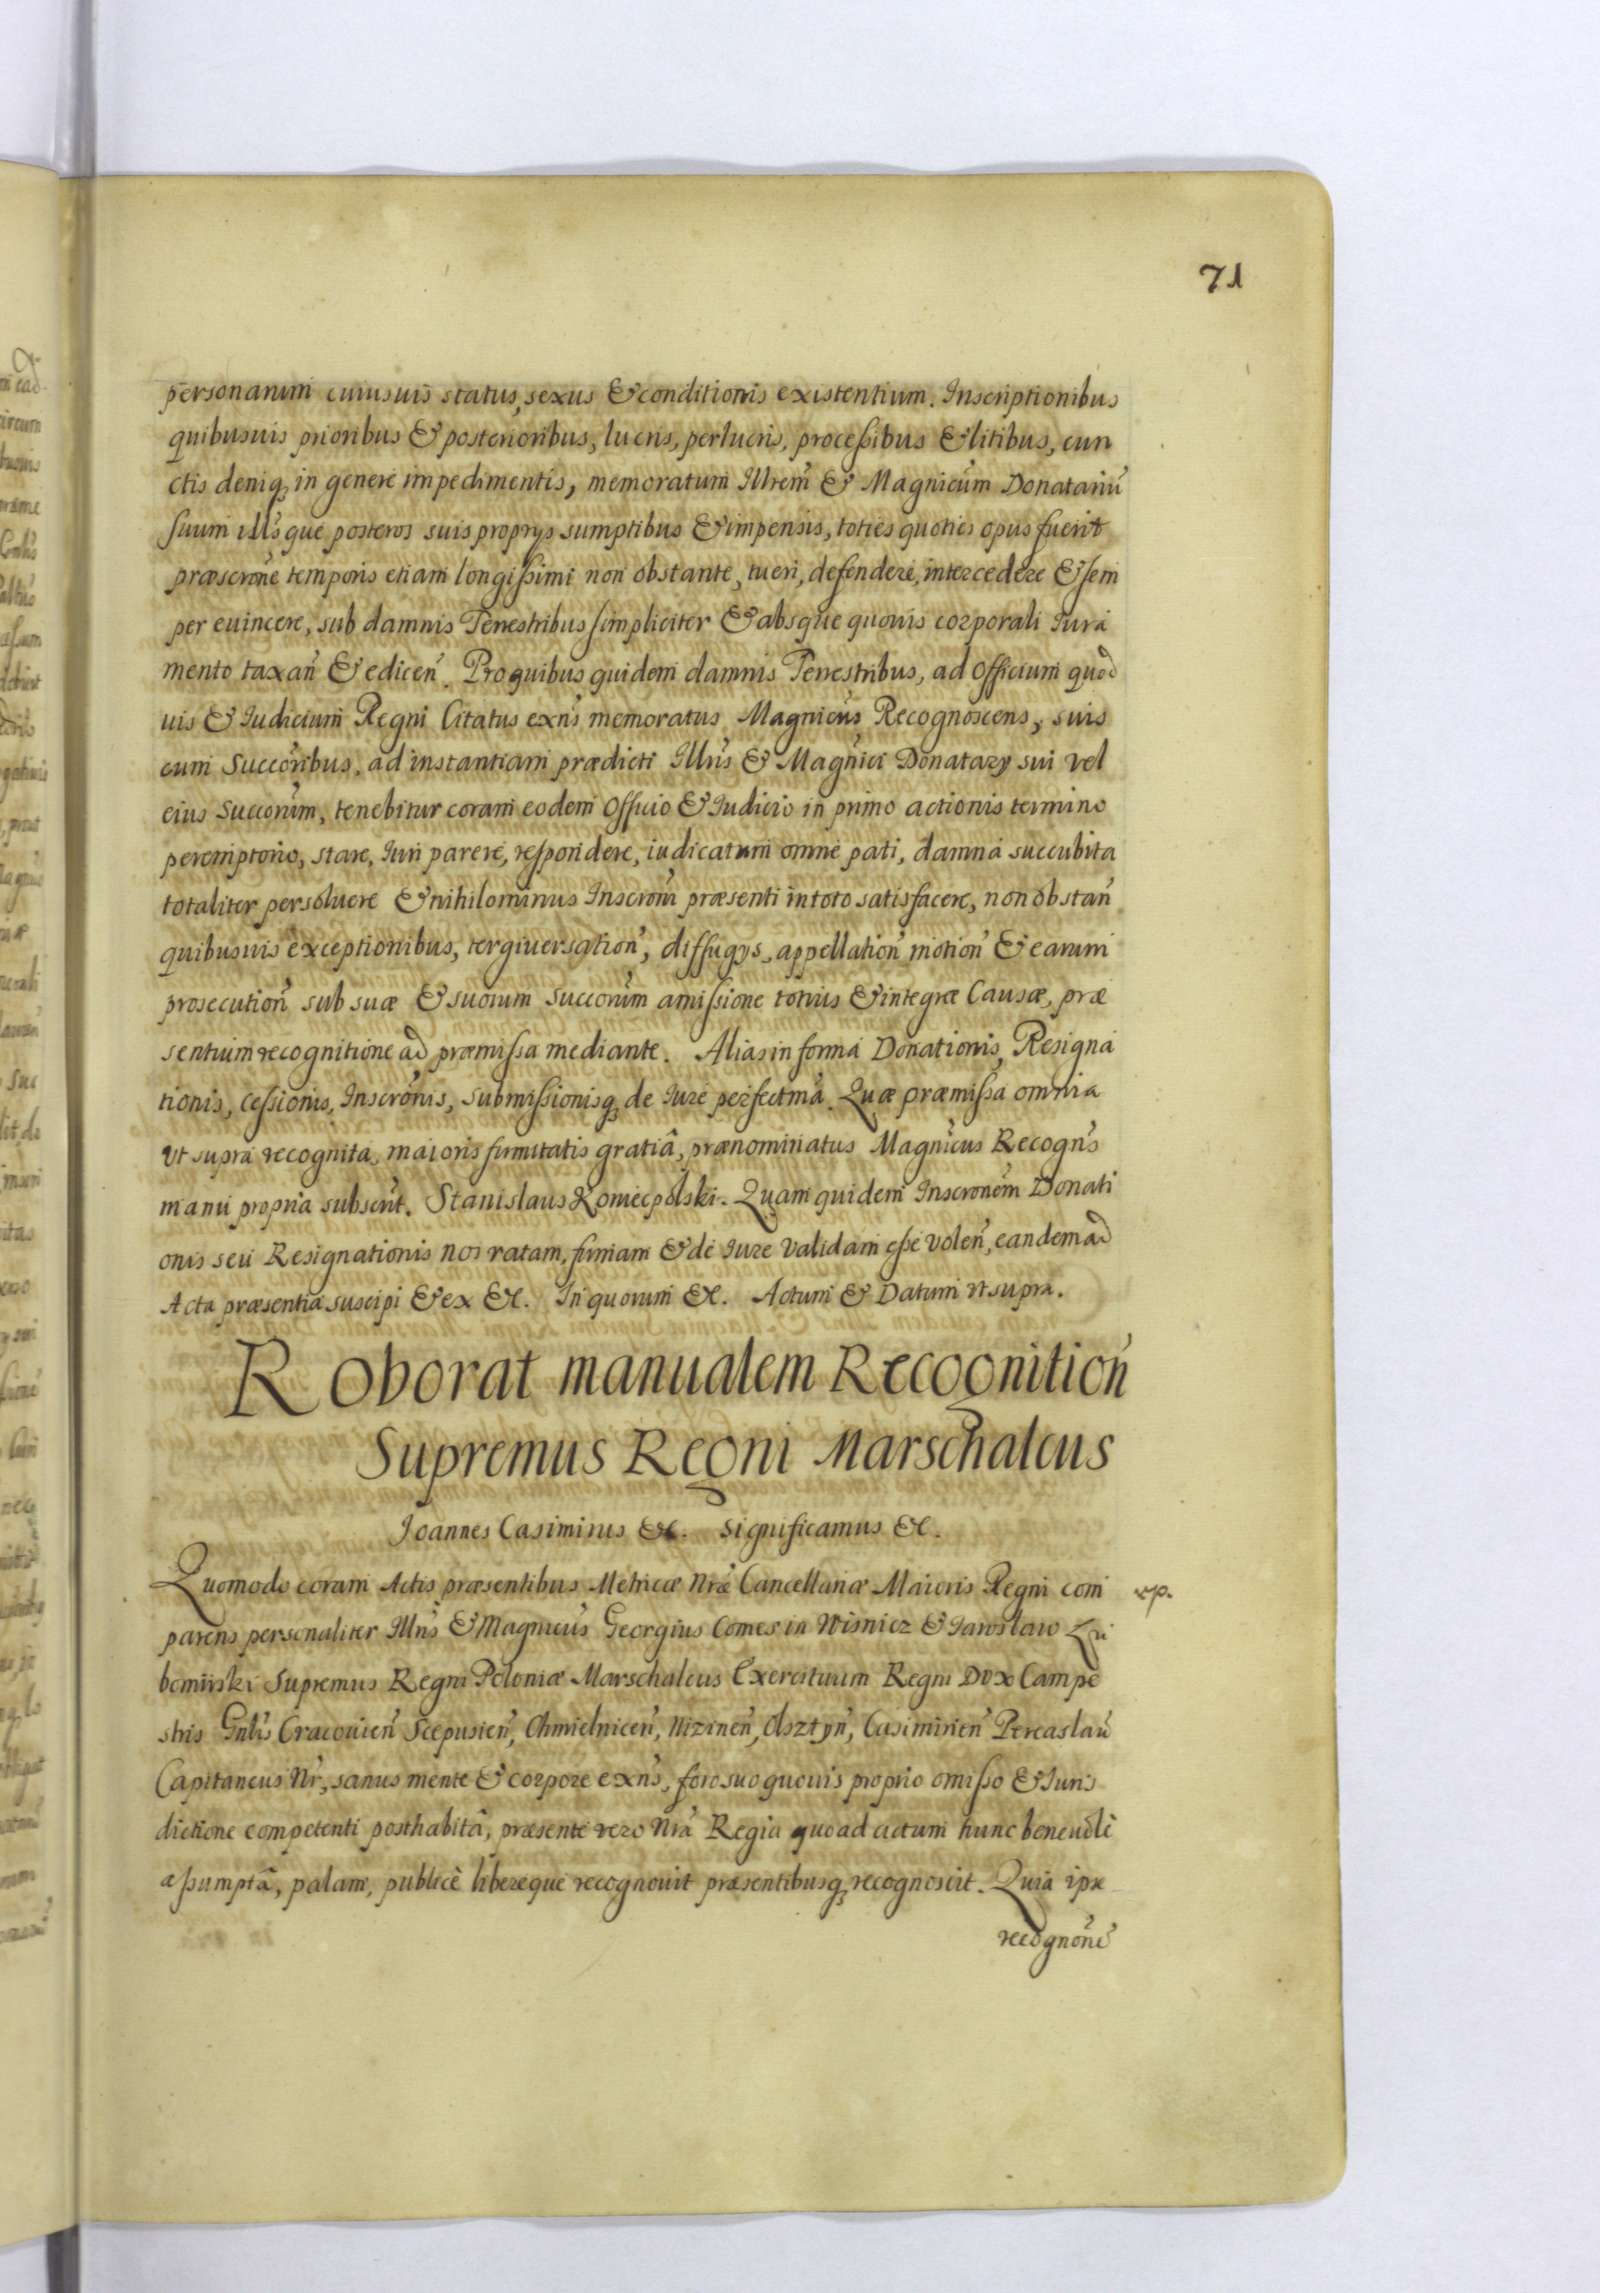 71
personarum cuiusuis status, sexus & conditionis existentium. Inscriptionibus
quibusuis prioribus & posterioribus, lucris, perlucris, processibus & litibus, cun
ctis deniq; in genere impedimentis, memoratum Illrem̃ & Magnicum̃ Donatariũ
suum illi'sque posteros suis proprys sumptibus & impensis, toties quoties opus fuerit
præscrone temporis etiam longissimi non obstante, tueri, defendere, intercedere & sem
per euincere, sub damnis Terrestribus simpliciter & absque quouis corporali Iura
mento taxañ & ediceñ. Pro quibus quidem damnis Terrestribus, ad Officium quod
uis & Iudicium Regni Citatus exñs memoratus Magnicus Recognoscens, suis
cum Succoribus, ad instantiam prædicti Illris & Magnici Donatary sui vel
eius Succorum, tenebitur coram eodem Officio & Iudicio in primo actionis termino
peremptorio, stare, Iuri parere, respondere, iudicatum omne pati, damna succubita
totaliter persoluere & nihilominus Inscroni præsenti in toto satisfacere, non obstañ
quibusuis exceptionibus, tergiuersatioñ, diffugys, appellatioñ motioñ & earum
prosecutioñ sub suæ & suorum Succorum amissione totius & integræ Causæ, præ
sentium recognitione ad præmissa mediante. Alias in forma Donationis, Resigna
tionis, cessionis, Inscronis, submissionisq; de Iure perfectma. Quæ præmissa omnia
vt supra recognita, maioris firmitatis gratiâ, prænominatus Magnicus Recogñs
manu propria subscrit. Stanislaus Koniecpolski. Quam quidem Inscronem Donati
onis seu Resignationis nos ratam, firmam & de Iure validam esse voleñ, eandem ad
Acta præsentia suscipi & ex &c. In quorum &c. Actum & Datum vt supra.
Roborat manualem Recognitioñ
Supremus Regni Marschalcus
Ioannes Casimirus &c. Significamus &c.
Quomodo coram Actis præsentibus Metricæ Nræ Cancellariæ Maioris Regni com
parens personaliter Illris & Magnicus Georgius Comes in Wisnicz & Iaroslaw Lu
bomirski Supremus Regni Poloniæ Marschalcus Exercituum Regni Dux Campe
stris Gnlis Cracouieñ Scepusieñ, Chmielniceñ, Nizineñ, Olsztyñ, Casimirieñ Pereaslau
Capitaneus Nr, sanus mente & corpore exñs, foro suo quouis proprio omisso & Iuris
dictione competenti posthabitâ, præsente vero Nra Regia quoad actum hunc beneuole
assumptâ, palam, publicè libereque recognouit præsentibusq; recognoscit. Quia ipse
recognone